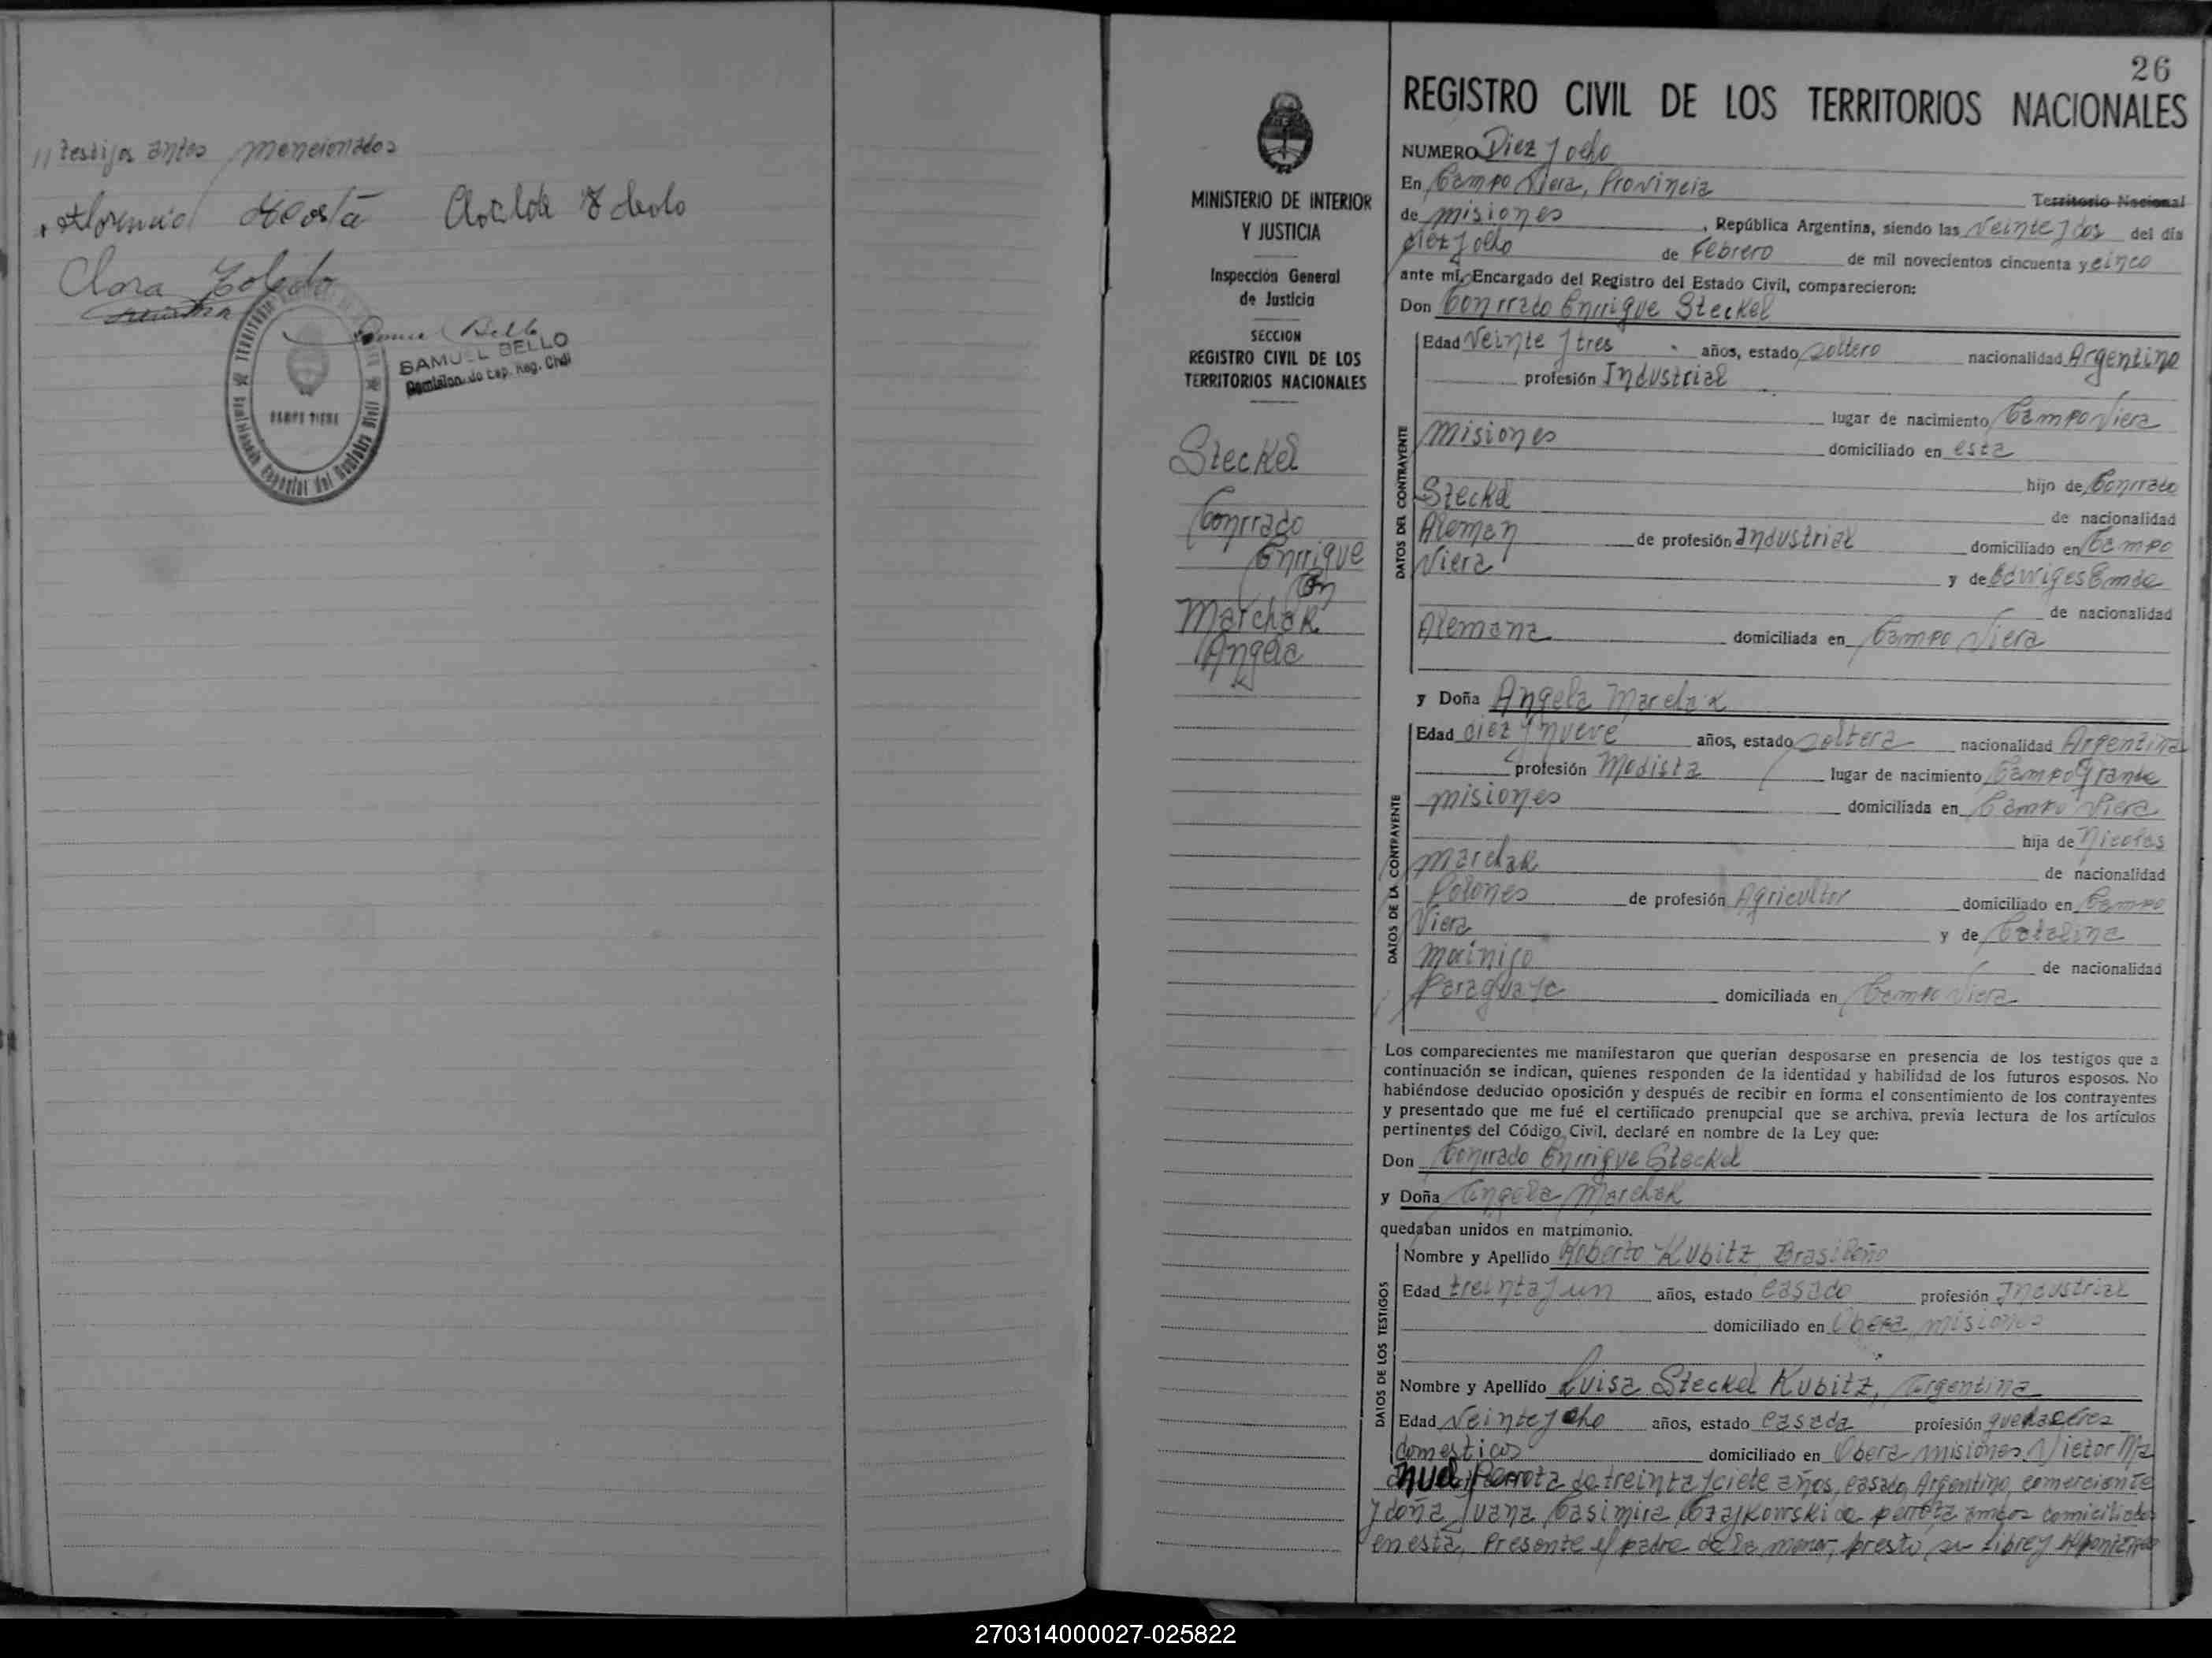 // testigos antes mencionados
Florencio Acosta Clotilde Toledo
Clara Toledo
SAMUEL BELLO
Comision. de Cap. Reg. Civil
CAMPO VIERA
26
REGISTRO CIVIL DE LOS TERRITORIOS NACIONALES
MINISTERIO DE INTERIOR
Y JUSTICIA
Inspección General
de Justicia
SECCION
REGISTRO CIVIL DE LOS
TERRITORIOS NACIONALES
Steckel
Conrrado
Enrrique
Con
Marchak
Angela
NUMERO Diez y ocho
En Campo Viera, Provincia Territorio Nacional
de misiones, República Argentina, siendo las veinte y dos del día
diez y ocho de Febrero de mil novecientos cincuenta y cinco
ante mí, Encargado del Registro del Estado Civil, comparecieron:
Don Conrrado Enrrique Steckel
DATOS DEL CONTRAYENTE
Edad Veinte y tres años, estado soltero nacionalidad Argentino
profesión Industrial
lugar de nacimiento Campo Viera
misiones domiciliado en esta
hijo de Conrrado
Steckel de nacionalidad
Aleman de profesión Industrial domiciliado en Campo
Viera y de Edwiges Emde
de nacionalidad
Alemana domiciliada en Campo Viera
y Doña Angela Marchak
DATOS DE LA CONTRAYENTE
Edad diez y nueve años, estado soltera nacionalidad Argentina
profesión Modista lugar de nacimiento Campo Grande
misiones domiciliada en Campo Viera
hija de Nicolas
marchak de nacionalidad
Polones de profesión Agricultor domiciliado en Campo
Viera y de Catalina
de nacionalidad
Paraguaya domiciliada en Campo Viera
Los comparecientes me manifestaron que querían desposarse en presencia de los testigos que a
continuación se indican, quienes responden de la identidad y habilidad de los futuros esposos. No
habiéndose deducido oposición y después de recibir en forma el consentimiento de los contrayentes
y presentado que me fué el certificado prenupcial que se archiva, previa lectura de los artículos
pertinentes del Código Civil, declaré en nombre de la Ley que:
Don Conrrado Enrrique Steckel
y Doña Angela Marchak
quedaban unidos en matrimonio.
DATOS DE LOS TESTIGOS
Nombre y Apellido Roberto Kubitz, Brasileño
Edad treinta y un años, estado casado profesión Industrial
domiciliado en Obera misiones
Nombre y Apellido Luisa Steckel Kubitz, Argentina
Edad Veinte y ocho años, estado casada profesión quehaceres
domesticos domiciliado en Obera misiones. Victor Ma
nuel Perrota de treinta y ciete años, casado Argentino, comerciante
y doña Juana Casimira Czajkowski de perrota amcos domiciliados
en esta, Presente el padre de la menor, presto su libre y
270314000027-025822